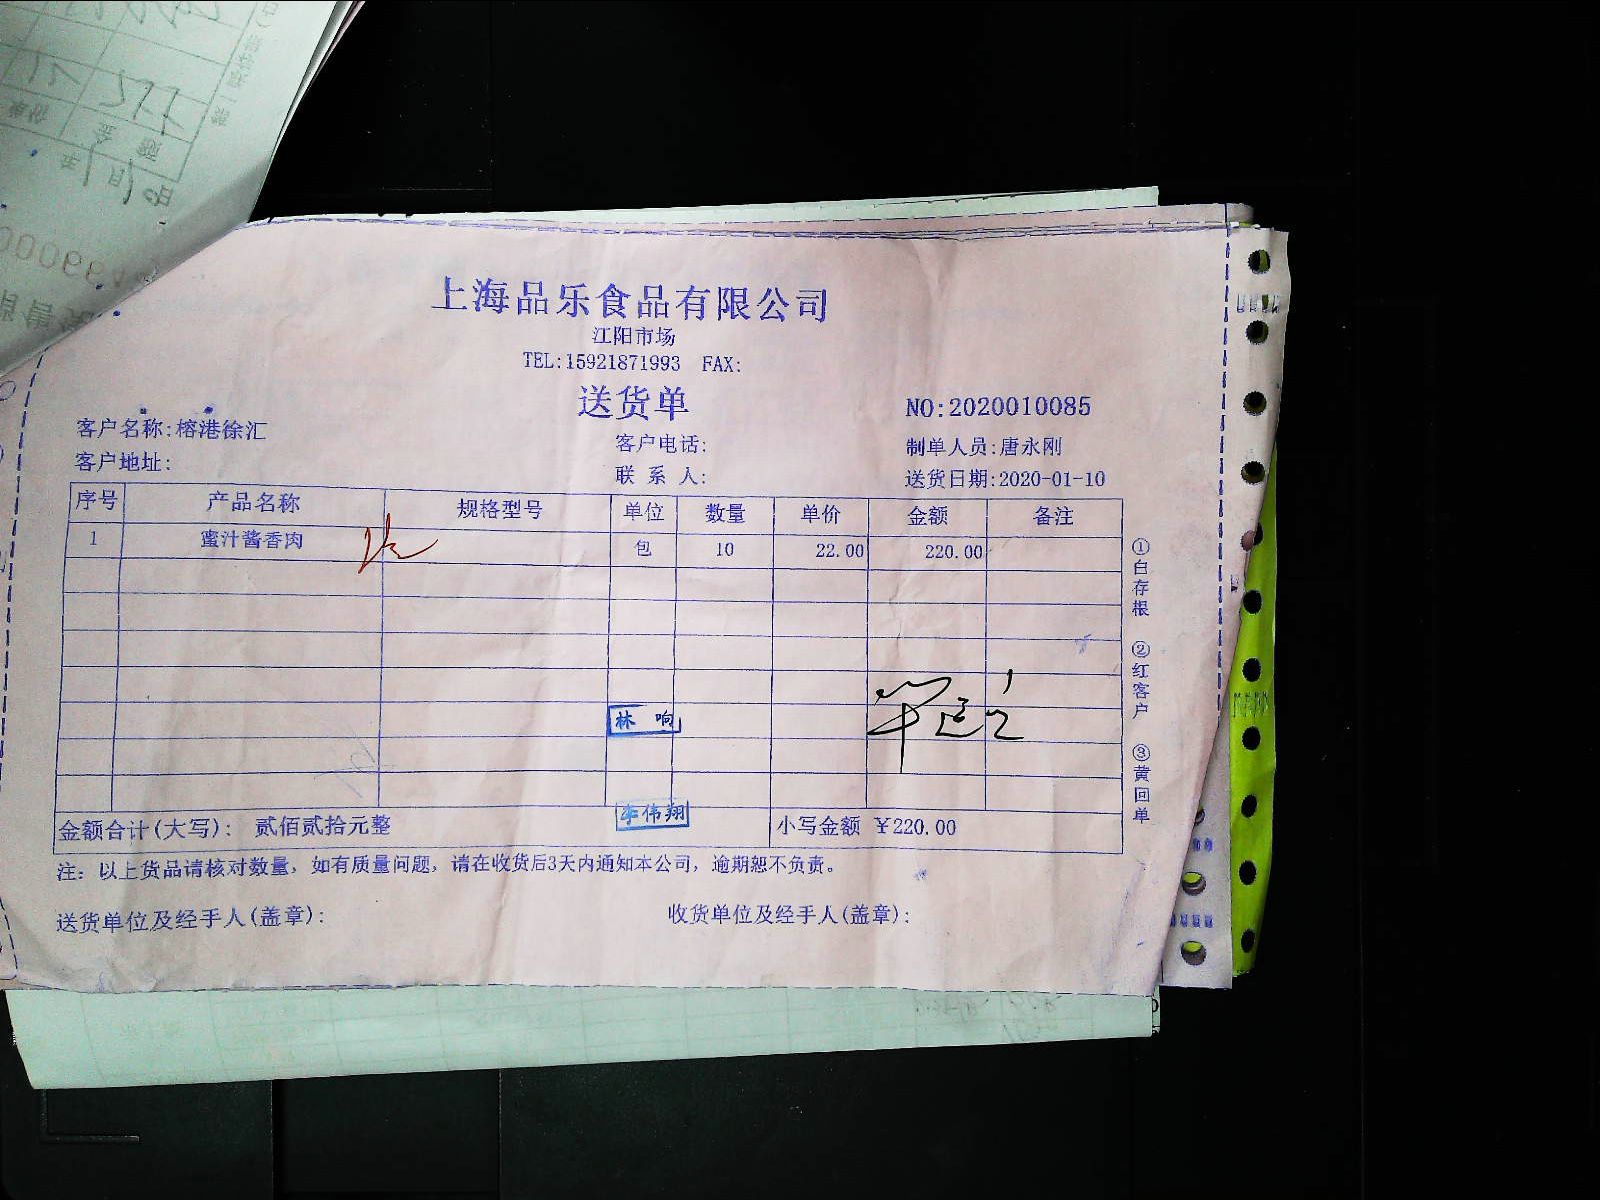 上海品乐食品有限公司
江阳市场
TEL:15921871993 FAX:
送货单
NO:2020010085
客户名称:榕港徐汇
客户电话:
制单人员:唐永刚
客户地址:
联系人:
送货日期:2020-01-10
序号 产品名称 规格型号 单位 数量 单价 金额 备注
1 蜜汁酱香肉 包 10 22.00 220.00
①白存根 ②红客户 ③黄回单
林响
李伟翔
金额合计(大写): 贰佰贰拾元整 小写金额 ¥220.00
注: 以上货品请核对数量, 如有质量问题, 请在收货后3天内通知本公司, 逾期恕不负责。
送货单位及经手人(盖章): 收货单位及经手人(盖章):